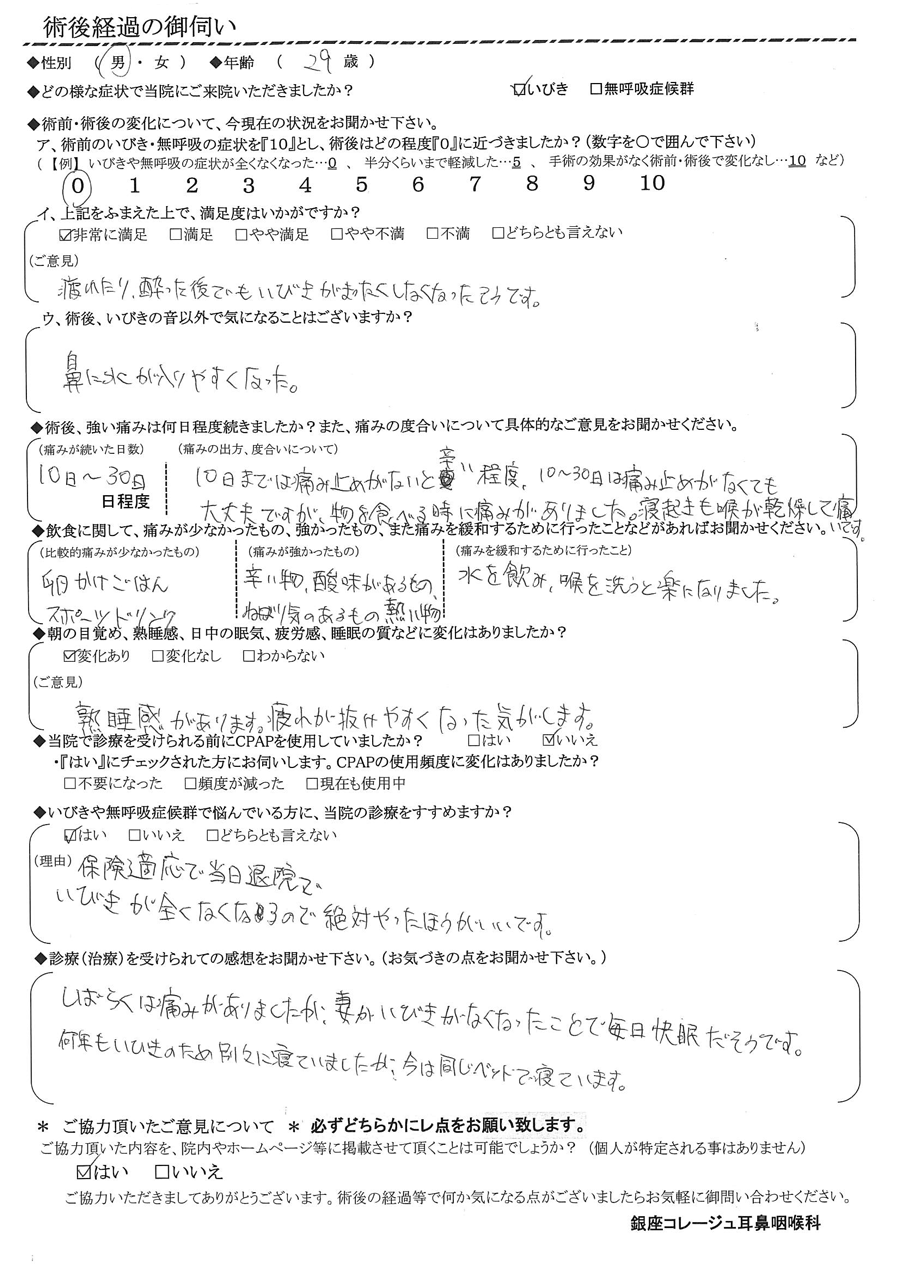 術後経過の御伺い
◆性別 （ 男 ・ 女 ） ◆年齢 （ 29 歳 ）
◆どの様な症状で当院にご来院いただきましたか？ ☑いびき □無呼吸症候群
◆術前・術後の変化について、今現在の状況をお聞かせ下さい。
ア、術前のいびき・無呼吸の症状を『10』とし、術後はどの程度『0』に近づきましたか？（数字を○で囲んで下さい）
（【例】いびきや無呼吸の症状が全くなくなった…0 、 半分くらいまで軽減した…5 、 手術の効果がなく術前・術後で変化なし…10 など）
0 1 2 3 4 5 6 7 8 9 10
イ、上記をふまえた上で、満足度はいかがですか？
☑非常に満足 □満足 □やや満足 □やや不満 □不満 □どちらとも言えない
（ご意見）
疲れたり、酔った後でもいびきがまったくしなくなったそうです。
ウ、術後、いびきの音以外で気になることはございますか？
鼻に水が入りやすくなった。
◆術後、強い痛みは何日程度続きましたか？また、痛みの度合いについて具体的なご意見をお聞かせください。
（痛みが続いた日数） （痛みの出方、度合いについて）
10日～30日 日程度
10日までは痛み止めがないと辛い程度、10～30日は痛み止めがなくても
大丈夫ですが、物を食べる時に痛みがありました。寝起きも喉が乾燥して痛
いです。
◆飲食に関して、痛みが少なかったもの、強かったもの、また痛みを緩和するために行ったことなどがあればお聞かせください。
（比較的痛みが少なかったもの） （痛みが強かったもの） （痛みを緩和するために行ったこと）
卵かけごはん
スポーツドリンク
辛い物、酸味があるもの、
ねばり気のあるもの 熱い物
水を飲み、喉を洗うと楽になりました。
◆朝の目覚め、熟睡感、日中の眠気、疲労感、睡眠の質などに変化はありましたか？
☑変化あり □変化なし □わからない
（ご意見）
熟睡感があります。疲れが抜けやすくなった気がします。
◆当院で診療を受けられる前にCPAPを使用していましたか？ □はい ☑いいえ
・『はい』にチェックされた方にお伺いします。CPAPの使用頻度に変化はありましたか？
□不要になった □頻度が減った □現在も使用中
◆いびきや無呼吸症候群で悩んでいる方に、当院の診療をすすめますか？
☑はい □いいえ □どちらとも言えない
（理由） 保険適応で当日退院で、
いびきが全くなくなるので絶対やったほうがいいです。
◆診療（治療）を受けられての感想をお聞かせ下さい。（お気づきの点をお聞かせ下さい。）
しばらくは痛みがありましたが、妻がいびきがなくなったことで毎日快眠だそうです。
何年もいびきのため別々に寝ていましたが、今は同じベッドで寝ています。
＊ ご協力頂いたご意見について ＊ 必ずどちらかにレ点をお願い致します。
ご協力頂いた内容を、院内やホームページ等に掲載させて頂くことは可能でしょうか？（個人が特定される事はありません）
☑はい □いいえ
ご協力いただきましてありがとうございます。術後の経過等で何か気になる点がございましたらお気軽に御問い合わせください。
銀座コレージュ耳鼻咽喉科